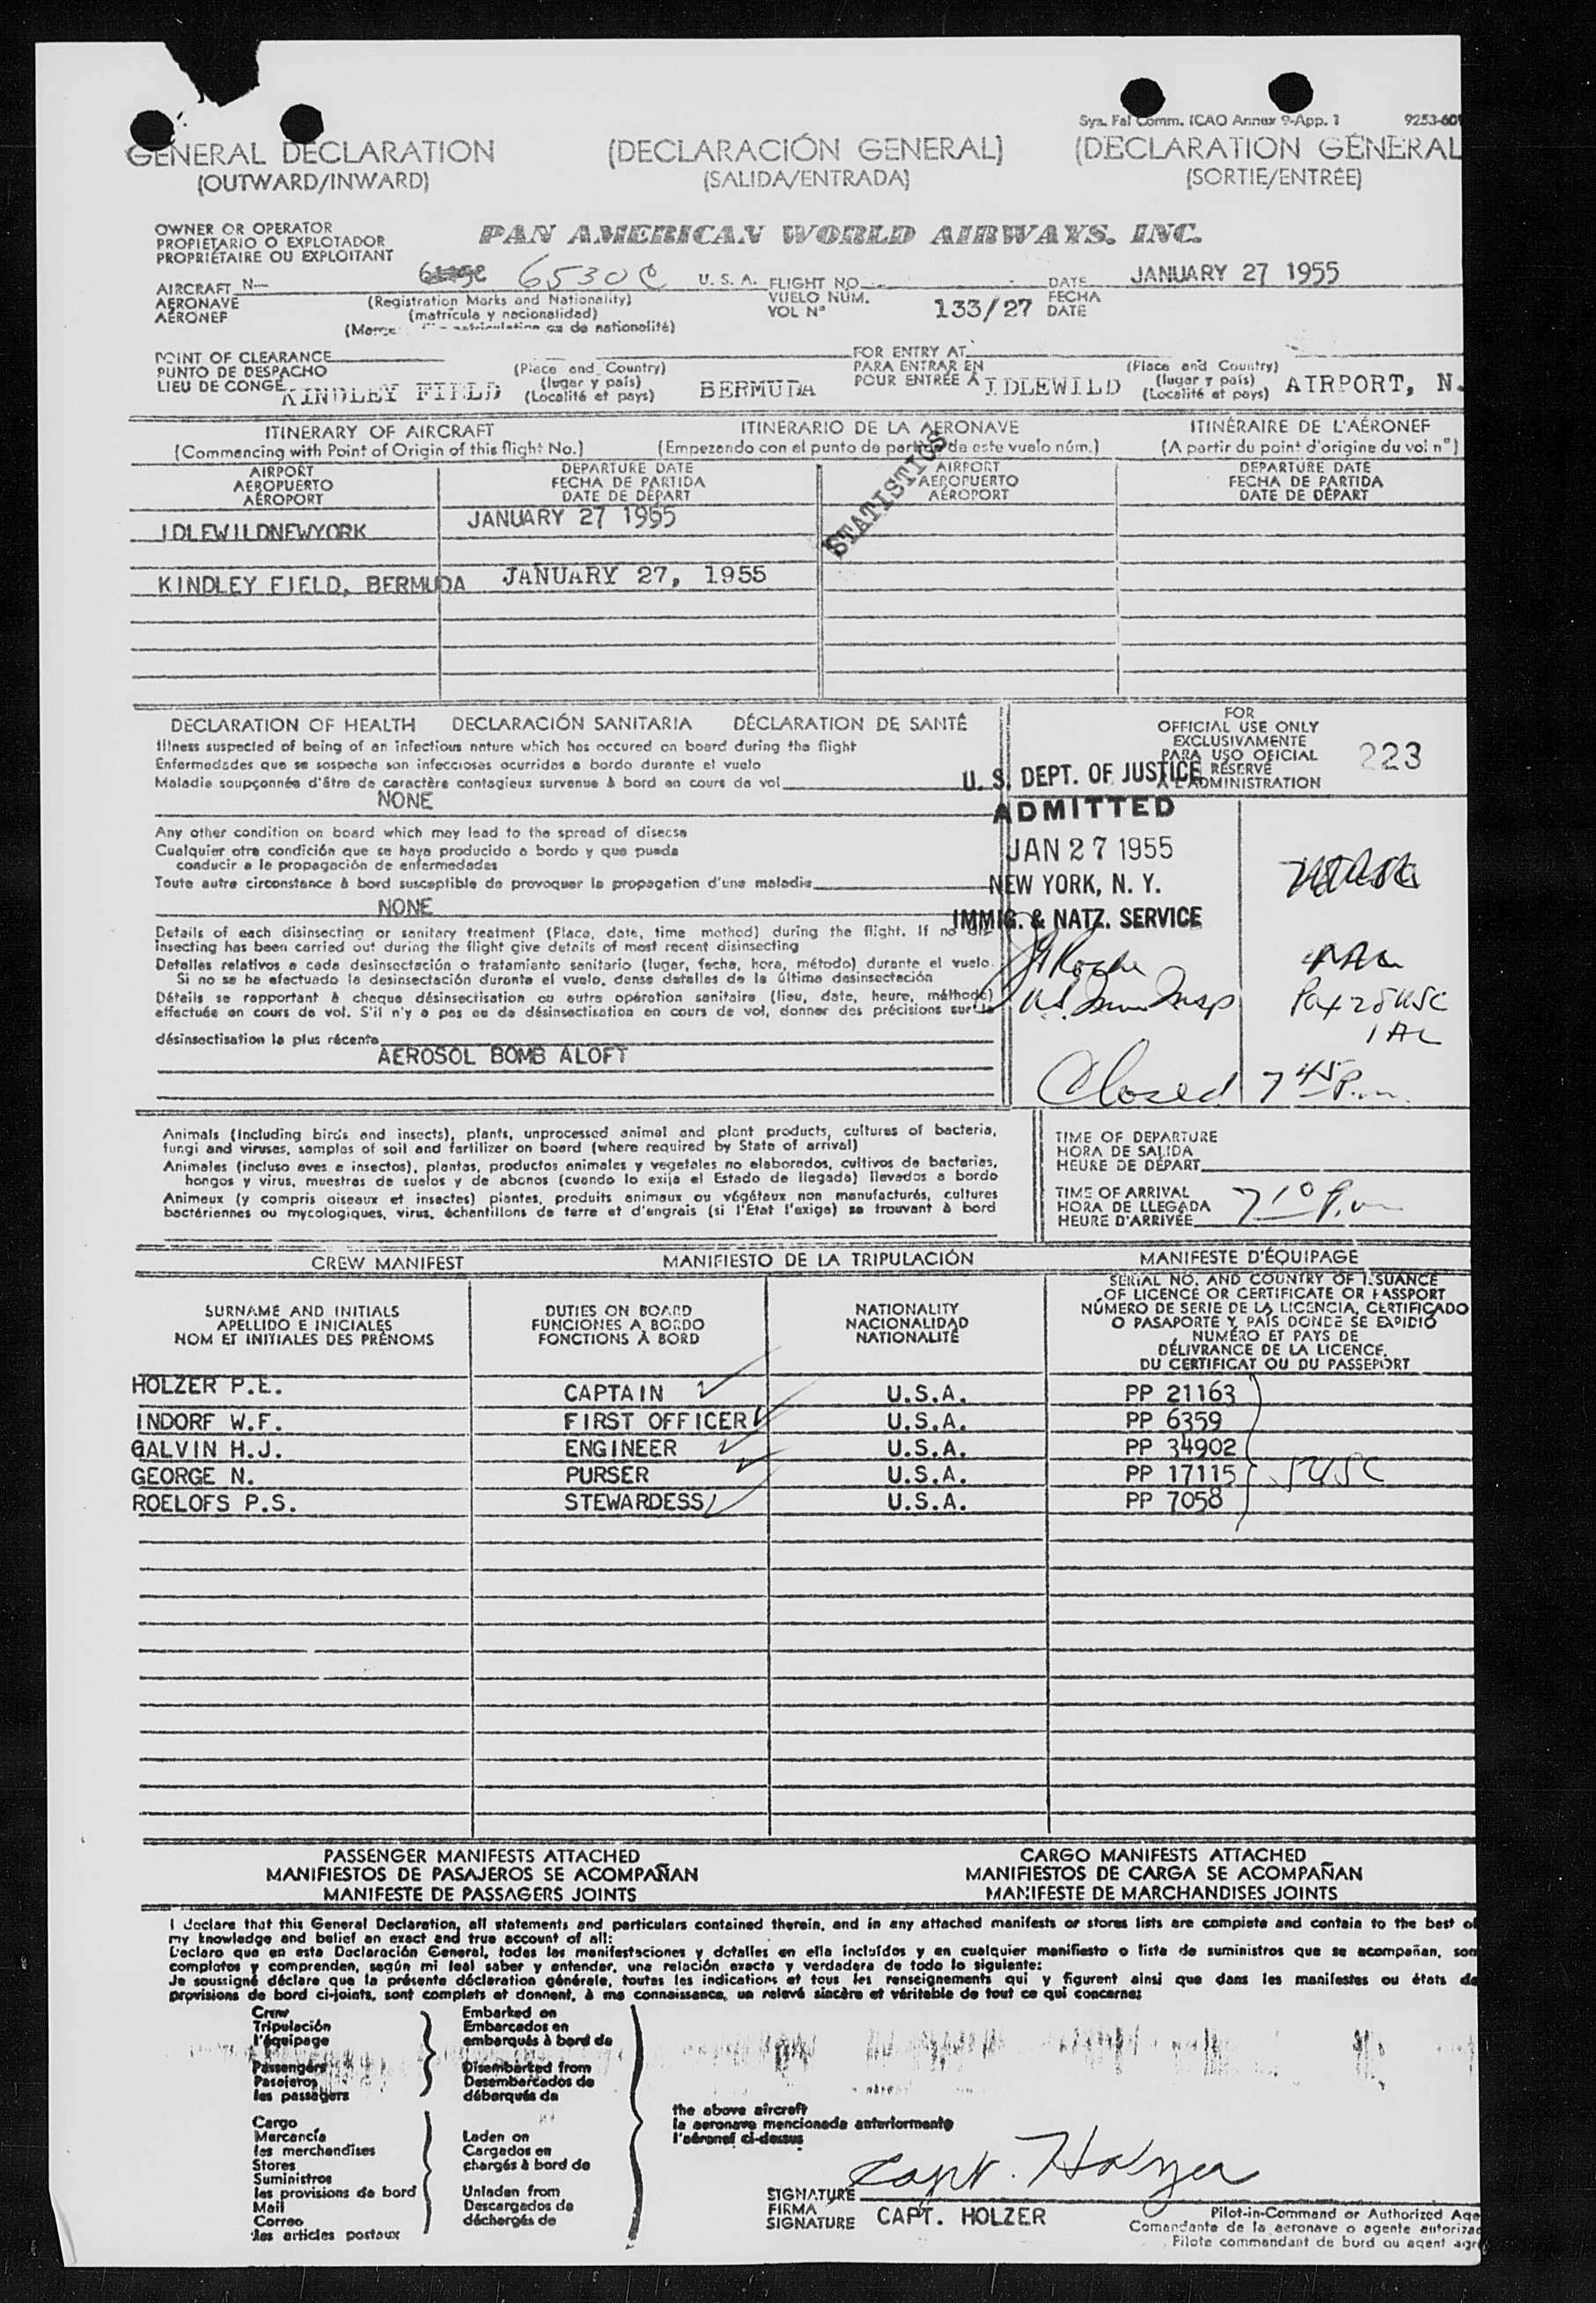 Sys. Fal Comm. ICAO Annex 9-App. 1 9253-60
GENERAL DECLARATION (DECLARACIÓN GENERAL) (DECLARATION GÉNÉRAL
(OUTWARD/INWARD) (SALIDA/ENTRADA) (SORTIE/ENTRÉE)
OWNER OR OPERATOR
PROPIETARIO O EXPLOTADOR
PROPRIÉTAIRE OU EXPLOITANT
PAN AMERICAN WORLD AIRWAYS, INC.
AIRCRAFT N— 6530C U. S. A. FLIGHT NO. DATE JANUARY 27 1955
AERONAVE (Registration Marks and Nationality) VUELO NÚM. 133/27 FECHA
AÉRONEF (matrícula y nacionalidad) VOL Nº DATE
POINT OF CLEARANCE FOR ENTRY AT
PUNTO DE DESPACHO (Place and Country) PARA ENTRAR EN (Place and Country)
LIEU DE CONGÉ KINDLEY FIELD (lugar y país) BERMUDA POUR ENTRÉE À IDLEWILD (lugar y país) AIRPORT, N.
(Localité et pays) (Localité et pays)
ITINERARY OF AIRCRAFT ITINERARIO DE LA AERONAVE ITINÉRAIRE DE L'AÉRONEF
(Commencing with Point of Origin of this flight No.) (Empezando con el punto de partida de este vuelo núm.) (A partir du point d'origine du vol nº)
AIRPORT DEPARTURE DATE AIRPORT DEPARTURE DATE
AEROPUERTO FECHA DE PARTIDA AEROPUERTO FECHA DE PARTIDA
AÉROPORT DATE DE DÉPART AÉROPORT DATE DE DÉPART
STATISTICS
IDLEWILDNEWYORK JANUARY 27 1955
KINDLEY FIELD, BERMUDA JANUARY 27, 1955
DECLARATION OF HEALTH DECLARACIÓN SANITARIA DÉCLARATION DE SANTÉ
Illness suspected of being of an infectious nature which has occured on board during the flight
Enfermedades que se sospecha son infecciosas ocurridas a bordo durante el vuelo
Maladie soupçonnée d'être de caractère contagieux survenue à bord en cours de vol
NONE
Any other condition on board which may lead to the spread of disease
Cualquier otra condición que se haya producido a bordo y que pueda
conducir a la propagación de enfermedades
Toute autre circonstance à bord susceptible de provoquer la propagation d'une maladie
NONE
Details of each disinsecting or sanitary treatment (Place, date, time method) during the flight. If no dis-
insecting has been carried out during the flight give details of most recent disinsecting
Detalles relativos a cada desinsectación o tratamianto sanitario (lugar, fecha, hora, método) durante el vuelo.
Si no se ha efectuado la desinsectación durante el vuelo, dense detalles de la última desinsectación
Détails se rapportant à chaque désinsectisation ou autre opération sanitaire (lieu, date, heure, méthode)
effectuée en cours de vol. S'il n'y a pas eu de désinsectisation en cours de vol, donner des précisions sur la
désinsectisation la plus récente
AEROSOL BOMB ALOFT
FOR
OFFICIAL USE ONLY
EXCLUSIVAMENTE
PARA USO OFICIAL
RÉSERVÉ
À L'ADMINISTRATION
223
U. S. DEPT. OF JUSTICE
ADMITTED
JAN 27 1955
NEW YORK, N. Y.
IMMIG. & NATZ. SERVICE
Closed 7 45 P.m.
Animals (Including birds and insects), plants, unprocessed animal and plant products, cultures of bacteria,
fungi and viruses, samples of soil and fertilizer on board (where required by State of arrival)
Animales (incluso aves e insectos), plantas, productos animales y vegetales no elaborados, cultivos de bacterias,
hongos y virus, muestras de suelos y de abonos (cuando lo exija el Estado de llegada) llevados a bordo
Animaux (y compris oiseaux et insectes) plantes, produits animaux ou végétaux non manufacturés, cultures
bactériennes ou mycologiques, virus, échantillons de terre et d'engrais (si l'Etat l'exige) se trouvant à bord
TIME OF DEPARTURE
HORA DE SALIDA
HEURE DE DÉPART
TIME OF ARRIVAL
HORA DE LLEGADA
HEURE D'ARRIVÉE
7 10 P.m
CREW MANIFEST MANIFIESTO DE LA TRIPULACIÓN MANIFESTE D'ÉQUIPAGE
SURNAME AND INITIALS
APELLIDO E INICIALES
NOM ET INITIALES DES PRÉNOMS
DUTIES ON BOARD
FUNCIONES A BORDO
FONCTIONS À BORD
NATIONALITY
NACIONALIDAD
NATIONALITÉ
SERIAL NO. AND COUNTRY OF ISSUANCE
OF LICENCE OR CERTIFICATE OR PASSPORT
NÚMERO DE SERIE DE LA LICENCIA, CERTIFICADO
O PASAPORTE Y PAÍS DONDE SE EXPIDIÓ
NUMÉRO ET PAYS DE
DÉLIVRANCE DE LA LICENCE,
DU CERTIFICAT OU DU PASSEPORT
HOLZER P.E. CAPTAIN U.S.A. PP 21163
INDORF W.F. FIRST OFFICER U.S.A. PP 6359
GALVIN H.J. ENGINEER U.S.A. PP 34902
GEORGE N. PURSER U.S.A. PP 17115 5 USC
ROELOFS P.S. STEWARDESS U.S.A. PP 7058
PASSENGER MANIFESTS ATTACHED CARGO MANIFESTS ATTACHED
MANIFIESTOS DE PASAJEROS SE ACOMPAÑAN MANIFIESTOS DE CARGA SE ACOMPAÑAN
MANIFESTE DE PASSAGERS JOINTS MANIFESTE DE MARCHANDISES JOINTS
I declare that this General Declaration, all statements and particulars contained therein, and in any attached manifests or stores lists are complete and contain to the best of
my knowledge and belief an exact and true account of all:
Declaro que en esta Declaración General, todas las manifestaciones y detalles en ella incluídos y en cualquier manifiesto o lista de suministros que se acompañan, son
completos y comprenden, según mi leal saber y entender, una relación exacta y verdadera de todo lo siguiente:
Je soussigné déclare que la présente déclaration générale, toutes les indications et tous les renseignements qui y figurent ainsi que dans les manifestes ou états de
provisions de bord ci-joints, sont complets et donnent, à ma connaissance, un relevé sincère et véritable de tout ce qui concerne:
Crew Embarked on
Tripulación Embarcados en
l'équipage embarqués à bord de
Passengers Disembarked from
Pasajeros Desembarcados de
les passagers débarqués de
the above aircraft
la aeronave mencionada anteriormente
l'aéronef ci-dessus
Cargo
Mercancía Laden on
les merchandises Cargados en
Stores chargés à bord de
Suministros
les provisions de bord Unladen from
Mail Descargados de
Correo déchargés de
les articles postaux
Capt. Holzer
SIGNATURE
FIRMA
SIGNATURE
CAPT. HOLZER
Pilot-in-Command or Authorized Age
Comandante de la aeronave o agente autorizad
Pilote commandant de bord ou agent agr